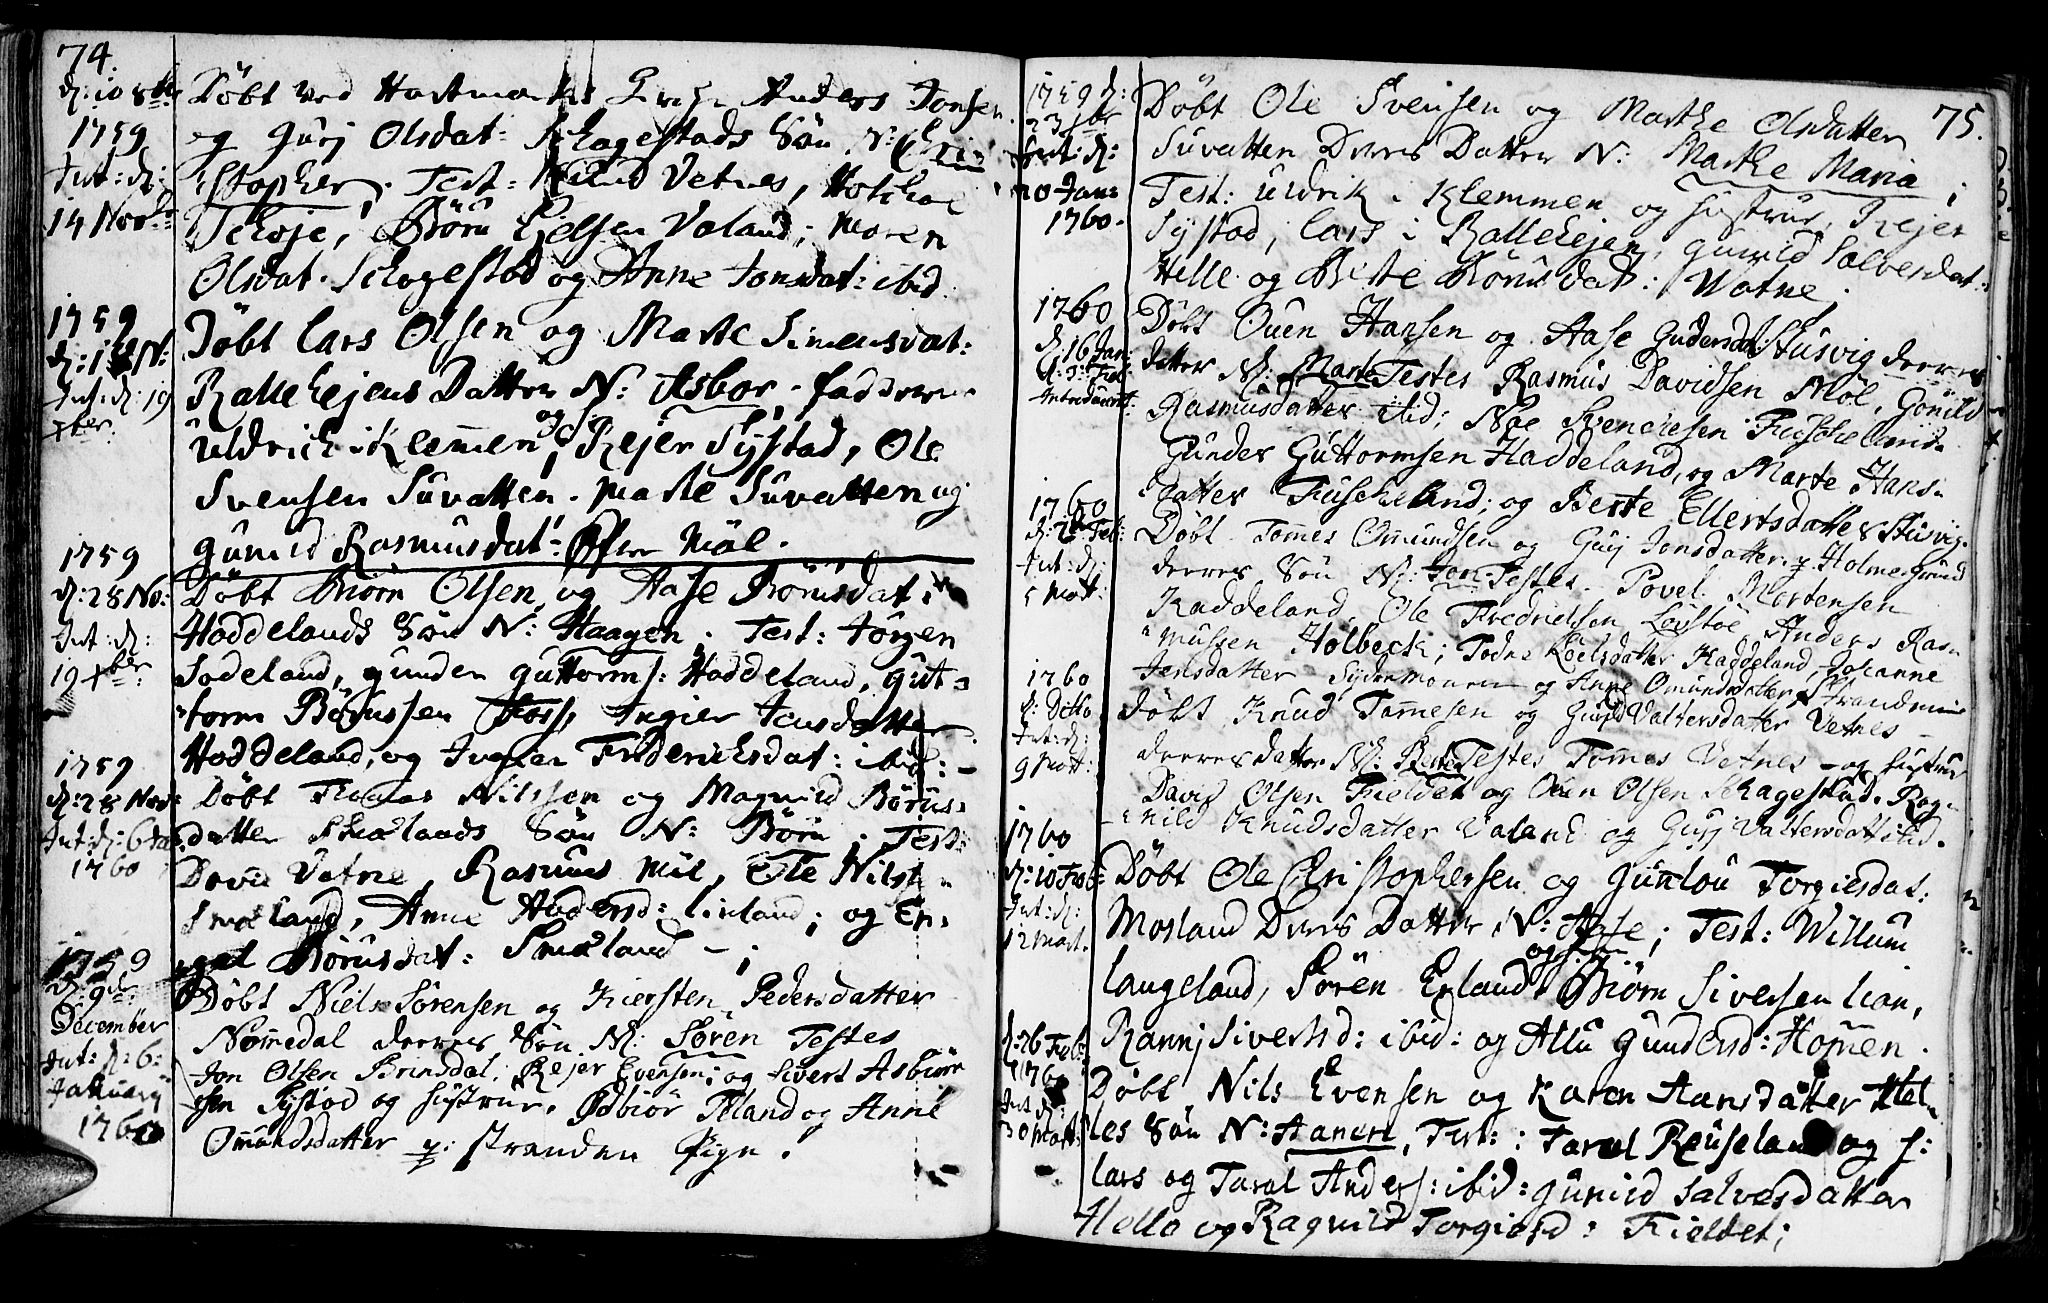 74.
d: 10 8br
1759
Int: d:
14 Novbr
Döbt ved Hartmarks Kirche Anders Jonsen
og Gurj Olsdat: Schogestads Sön N: Chri
stopher. Test: Knud Vetnes,
Schoje, Börn Kielsen Valand; Maren
Olsdat. Schogestad og Anne Jonsdat: ibid.
1759
Int: d: 19
xber
Döbt Lars Olsen og Marte Simensdat:
Rallekejens Datter N: Asbor. faddere
Uldrich i Klemmen og f, Rejer Systad, Ole
Svensen Suvatten. Marte Suvatten og
Gunild Rasmusdat: Öfre Möl.
1759
d: 28 No:
Int: d:
19 xber
Döbt Biörn Olsen og Aase Börnsdat:
Haddelands Sön N: Haagen. Test: Jörgen
Sodeland, Gunder Guttorms: Haddeland, Gut=
torm Börnssen Foss, Ingier Jensdatter
Haddeland, og Ingier Friderichsdat: ibid:
1759
d: 28 Nov:
Int: d: 6 Jan
1760
Döbt Tomas Nilssen og Magnild Börns=
datter Smælands Sön N: Börn; Test:
David Vatne, Rasmus Möl, Ole Nilss
Smæland, Anne Andersd: Linland; og En=
gel Börnsdat: Smæland -;
1759
d: 9de
December
Int: d: 6:
January
1760
Döbt Niels Sörensen og Kiersten Pedersdatter
Nomedal deeres Sön N: Sören Testes
Jon Olsen Brinsdal, Rejer Evensen; og Sivert Asbiörn
sen Systod og Hustrue. Osbiör Töland og Anne
Omundsdatter p: stranden Pige.
75.
1759 d:
23 xbr
Int: d:
20 Jan:
1760.
Döbt Ole Svensen og Marthe Olsdatter
Suvatten Deres Datter N: Marthe Maria;
Test: Uldrik i Klemmen og Hustrue, Rejer
Systad, Lars i Rallekejen, Gunild Salvesdat:
Helle og Birte Börnsdat: Watne;
1760
d. 16 Jan:
introduceret:
Döbt Ouen Hansen og Aase Gundersdat: Stusvig deeres
datter N: Marte Testes Rasmus Davidsen Möl, Gönild
Rasmusdatter ibid; Noe Svenchesen Fuscheland
Gunder Guttormsen Haddeland, og Marte Hans=
datter Fuscheland; og Berte Ellertsdatter Stusvig.
1760
Int: d:
5 Mart:
Döbt Tomes Omundsen og Gurj Jonsdatter p: Holme-Grund
deeres Sön N: Jon Testes. Povel Mortensen
Haddeland, Ole Fredrichsen Löistöe Anders Ras=
mussen Holbeck; Todne Roelsdatter Haddeland, Johanne
Jensdatter Sydermonen og Anne Omundsdatter p: Stranden
1760
d: Ditto
Int: d:
9 Mart:
Döbt Knud Tomesen og Gunild Valtersdatter Vetnes
deeres datter N: Berte Testes Tomes Vetnes - og Hustrue
David Olsen Fieldet og Ouen Olsen Schagestad. Rag=
nild Knudsdatter Valand og Gurj Valtersdatt: ibid.
1760
d: 10 Feb:
Int: d:
12 Mart.
Döbt Ole Christophersen og Gunlou Torgiesdat:
Mosland Deres Datter N: Aase; Test: Willum
Langeland, Sören Erland og hu: Biörn Siversen Lian,
Rannj Siversd: ibid: og Allu Gundersd: Homen.
d: 26 Feb:
1760
Int: d:
30 Mart:
Döbt Nils Evensen og Karen Hansdatter Hel=
les Sön N: Hanen, Test: Taral Reuseland og f:
Lars og Taral Anders: ibid: Gunild Salvesdatter
Hello og Ragnild Torgiesd: Fieldet;